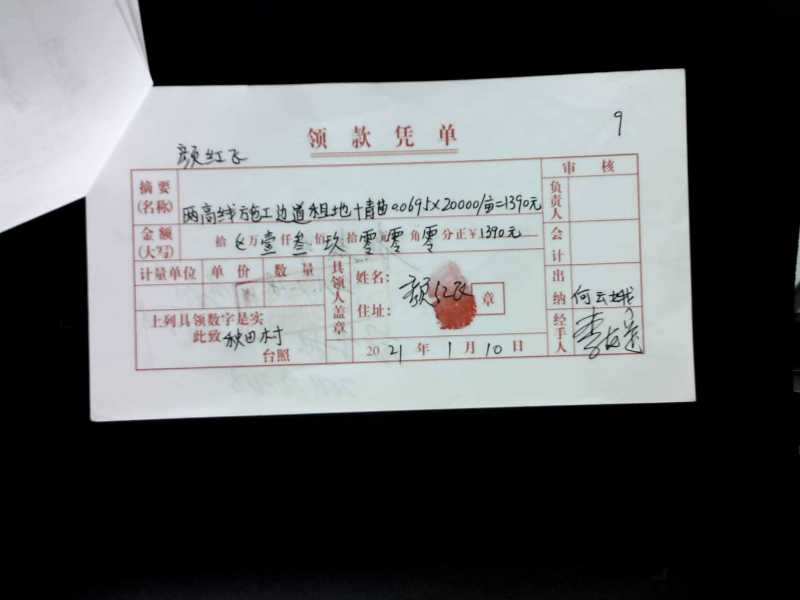 9
领款凭单
颜红飞
摘要(名称) 两高线施工边道租地+青苗0.0695×20000/亩=1390元
审核
负责人
金额(大写) 拾 万壹仟叁佰玖拾零元零角零分正¥1390元
会计
计量单位 单价 数量
具领人盖章
姓名: 颜红飞 章
住址:
出纳 何云娥
上列具领数字是实
此致 秧田村
台照
2021年1月10日
经手人